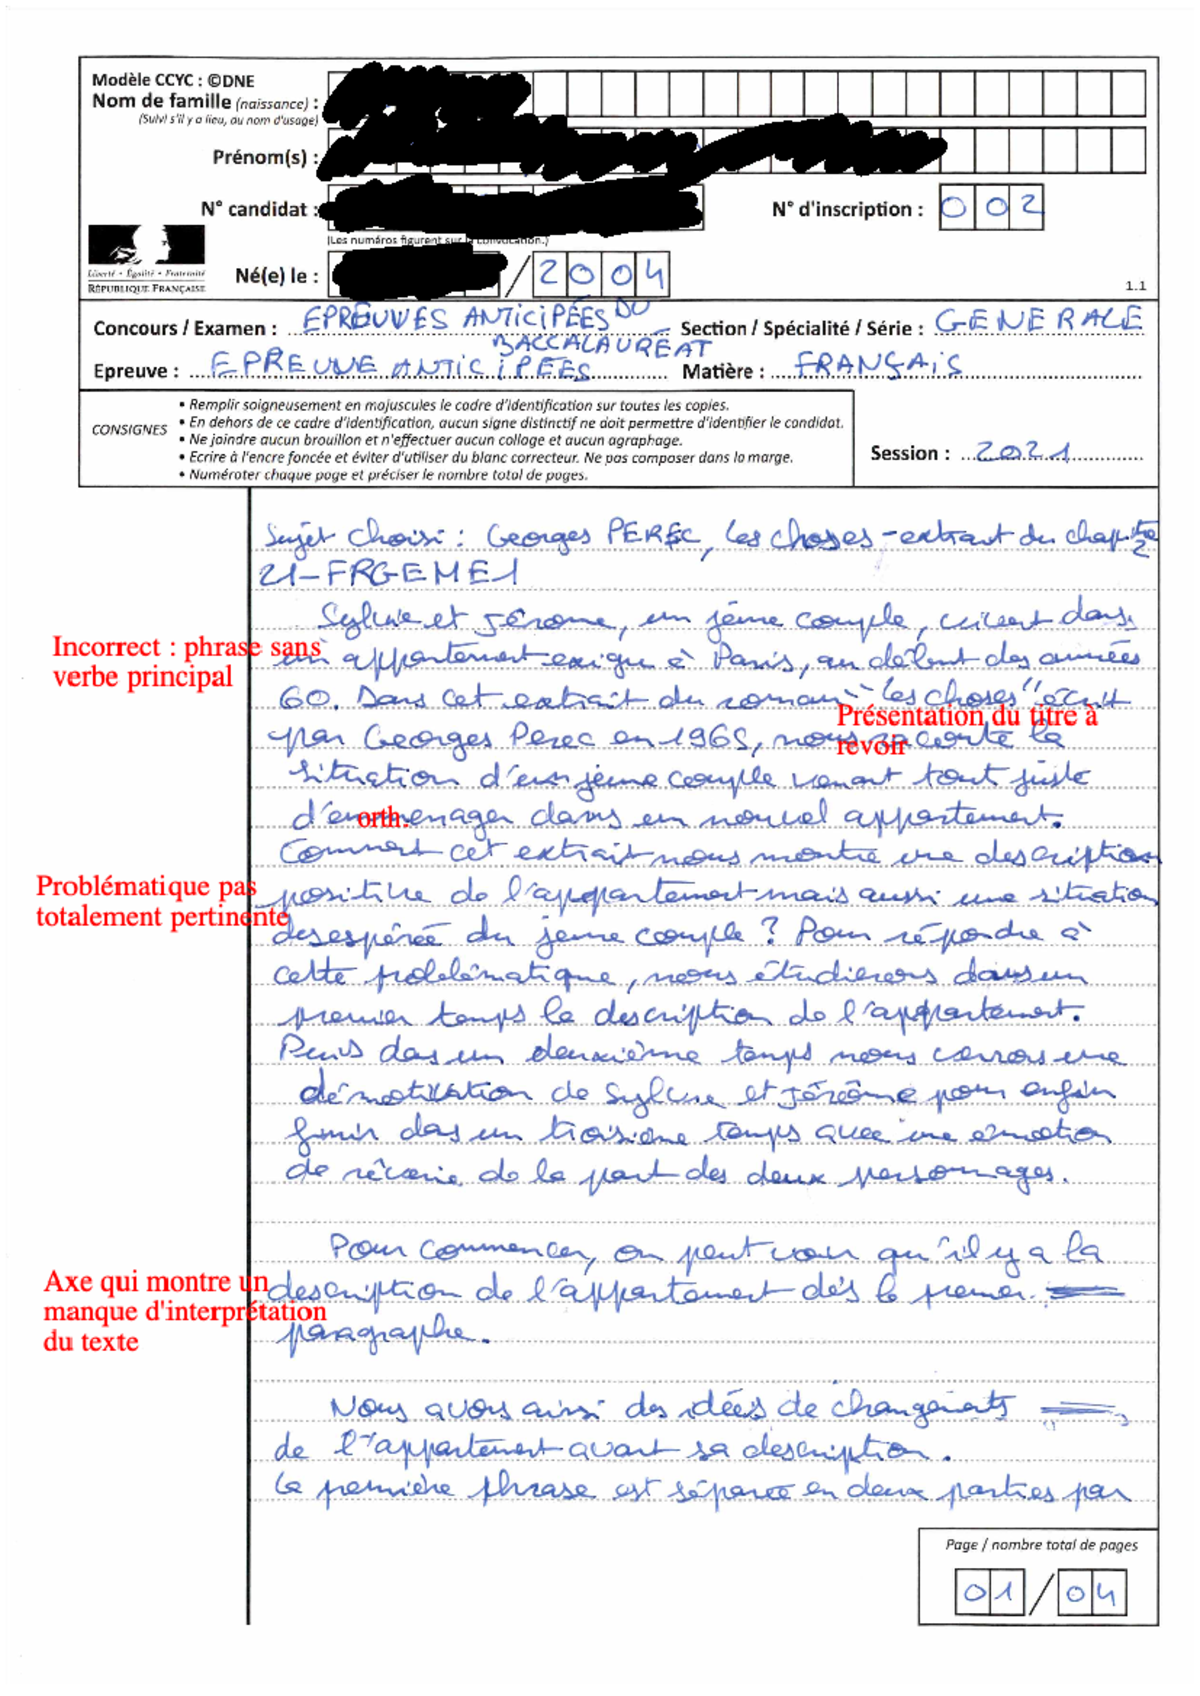 Modèle CCYC : ©DNE
Nom de famille (naissance) :
(Suivi s'il y a lieu, du nom d'usage)
Prénom(s) :
N° candidat :
N° d'inscription : 002
(Les numéros figurent sur la convocation.)
Liberté • Égalité • Fraternité
RÉPUBLIQUE FRANÇAISE
Né(e) le : / 2004
1.1
Concours / Examen : EPREUVES ANTICIPÉES DU BACCALAURÉAT
Section / Spécialité / Série : GENERALE
Epreuve : EPREUVE ANTICIPÉES
Matière : FRANÇAIS
CONSIGNES
• Remplir soigneusement en majuscules le cadre d'identification sur toutes les copies.
• En dehors de ce cadre d'identification, aucun signe distinctif ne doit permettre d'identifier le candidat.
• Ne joindre aucun brouillon et n'effectuer aucun collage et aucun agraphage.
• Ecrire à l'encre foncée et éviter d'utiliser du blanc correcteur. Ne pas composer dans la marge.
• Numéroter chaque page et préciser le nombre total de pages.
Session : 2021
Sujet choisi : Georges PEREC, les choses - extrait du chapitre 2
21-FRGEME1
Sylvie et Jérome, un jeune couple, vivent dans
Incorrect : phrase sans verbe principal
un appartement exigu à Paris, au début des années
60. Dans cet extrait du roman "les choses" écrit
Présentation du titre à revoir
par Georges Perec en 1965, nous raconte la
situation d'un jeune couple venant tout juste
d'emmenager dans un nouvel appartement.
orth.
Comment cet extrait nous montre une description
Problématique pas totalement pertinente
positive de l'appartement mais aussi une situation
desespérée du jeune couple ? Pour répondre à
cette problématique, nous étudierons dans un
premier temps la description de l'appartement.
Puis dans un deuxième temps nous verrons une
démotivation de Sylvie et Jérôme pour enfin
finir dans un troisième temps avec une émotion
de rêverie de la part des deux personnages.
Pour commencer, on peut voir qu'il y a la
Axe qui montre un manque d'interprétation du texte
description de l'appartement dès le premier
paragraphe.
Nous avons ainsi des idées de changements
de l'appartement avant sa description.
La première phrase est séparée en deux parties par
Page / nombre total de pages
01 / 04